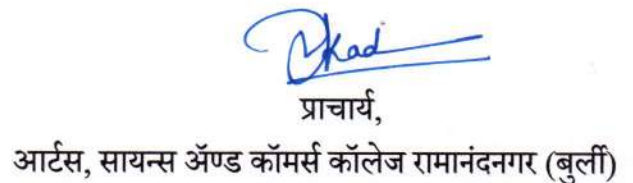 प्राचार्य,
आर्टस, सायन्स ॲण्ड कॉमर्स कॉलेज रामानंदनगर (बुर्ली)